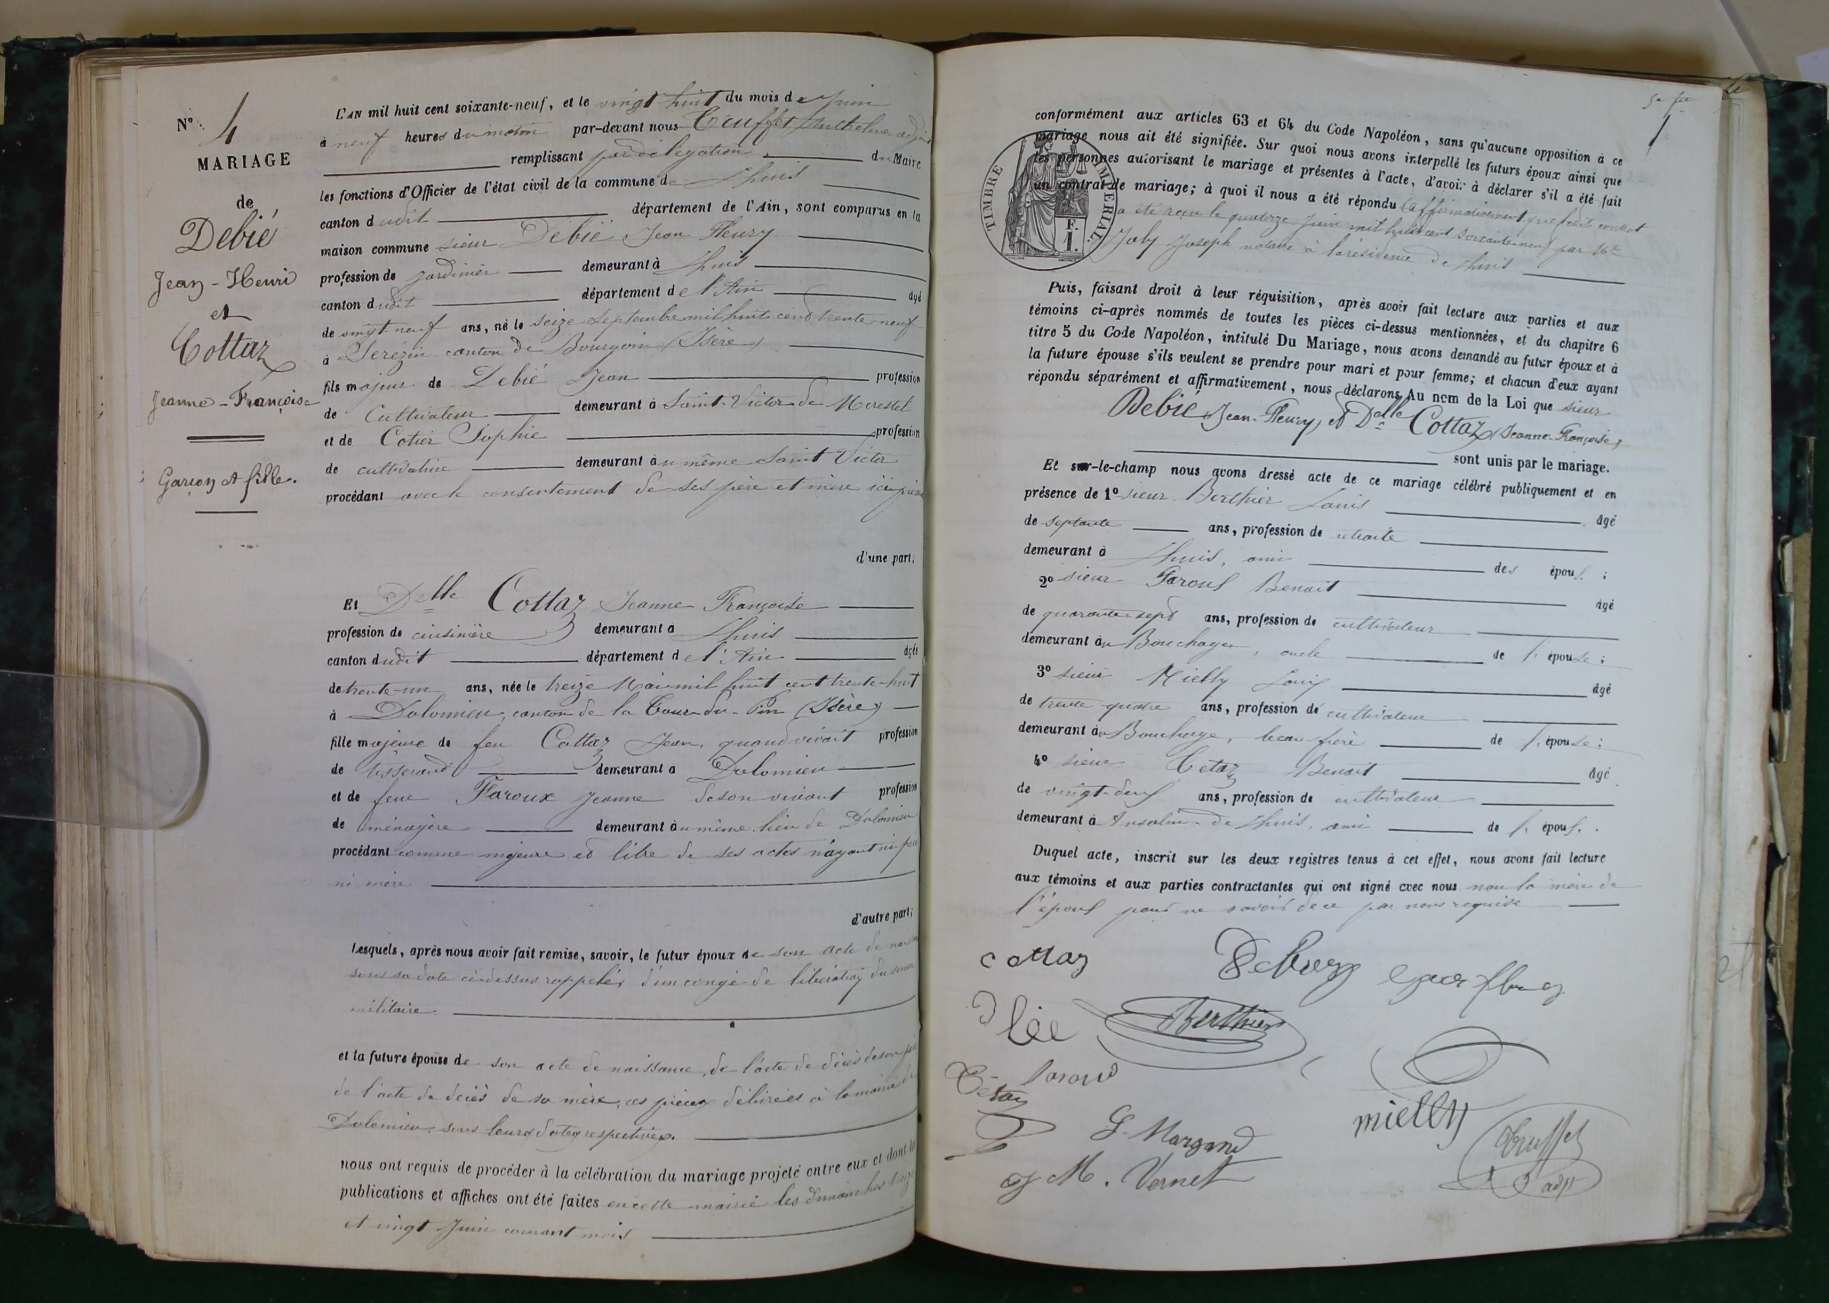 N° 4
MARIAGE
de
Debié
Jean-Henri
et
Cottaz
Jeanne-Françoise
Garçon et fille.
L'AN mil huit cent soixante-neuf, et le vingt huit du mois de Juin
à neuf heures du matin par-devant nous
remplissant par délégation du Maire
les fonctions d'Officier de l'état civil de la commune de Lhuis
canton dudit département de l'Ain, sont comparus en la
maison commune sieur Debié Jean Fleury
profession de jardinier demeurant à Lhuis
canton dudit département de l'Ain âgé
de vingt neuf ans, né le seize septembre mil huit cent trente-neuf
à Serézin canton de Bourgoin (Isère)
fils majeur de Debié Jean profession
de Cultivateur demeurant à Saint-Victor de Morestel
et de Cotier Sophie profession
de cultivatrice demeurant au même Saint Victor
procédant avec le consentement de ses père et mère ici
d'une part;
Et Delle Cottaz Jeanne Françoise
profession de cuisinière demeurant à Lhuis
canton dudit département de l'Ain âgée
de trente-un ans, née le treize Mai mil huit cent trente-huit
à Dolomieu, canton de la Tour-du-Pin (Isère)
fille majeure de feu Cottaz Jean, quand vivait profession
de tisserand demeurant à Dolomieu
et de feue Faroux Jeanne de son vivant profession
de ménagère demeurant au même lieu de Dolomieu
procédant comme majeure et libre de ses actes n'ayant ni père
ni mère
d'autre part;
Lesquels, après nous avoir fait remise, savoir, le futur époux de son acte de
sous sa date ci-dessus rappelée, d'un congé de libération du
militaire
et la future épouse de son acte de naissance, de l'acte de décès de son père
de l'acte de décès de sa mère, ces pièces délivrées à la mairie de
Dolomieu, sous leurs dates respectives.
nous ont requis de procéder à la célébration du mariage projeté entre eux et dont les
publications et affiches ont été faites en cette mairie les dimanches treize
et vingt Juin courant mois
conformément aux articles 63 et 64 du Code Napoléon, sans qu'aucune opposition à ce
mariage nous ait été signifiée. Sur quoi nous avons interpellé les futurs époux ainsi que
les personnes autorisant le mariage et présentes à l'acte, d'avoir à déclarer s'il a été fait
un contrat de mariage; à quoi il nous a été répondu affirmativement que dit contrat
a été reçu le quatorze Juin mil huit cent soixante neuf par Me
Joly Joseph notaire à la résidence de Lhuis
TIMBRE IMPERIAL.
F.
1.
Puis, faisant droit à leur réquisition, après avoir fait lecture aux parties et aux
témoins ci-après nommés de toutes les pièces ci-dessus mentionnées, et du chapitre 6
titre 5 du Code Napoléon, intitulé Du Mariage, nous avons demandé au futur époux et à
la future épouse s'ils veulent se prendre pour mari et pour femme; et chacun d'eux ayant
répondu séparément et affirmativement, nous déclarons Au nom de la Loi que sieur
Debié Jean-Fleury, et Delle Cottaz (Jeanne-Françoise)
sont unis par le mariage.
Et sur-le-champ nous avons dressé acte de ce mariage célébré publiquement et en
présence de 1° sieur Berthier Louis âgé
de septante ans, profession de retraité
demeurant à Lhuis, ami des époux;
2° sieur Faroux Benoit âgé
de quarante-sept ans, profession de cultivateur
demeurant au Bouchage, oncle de l'épouse;
3° sieur Mielly Louis âgé
de trente quatre ans, profession de cultivateur
demeurant au Bouchage, beau frère de l'épouse;
4° sieur Cetaz Benoit âgé
de vingt-deux ans, profession de cultivateur
demeurant à de Lhuis, ami de l'époux.
Duquel acte, inscrit sur les deux registres tenus à cet effet, nous avons fait lecture
aux témoins et aux parties contractantes qui ont signé avec nous non la mère de
l'époux pour ne savoir de ce par nous requise
cottaz
Berthier
mielly
G. Margand
M. Vernet